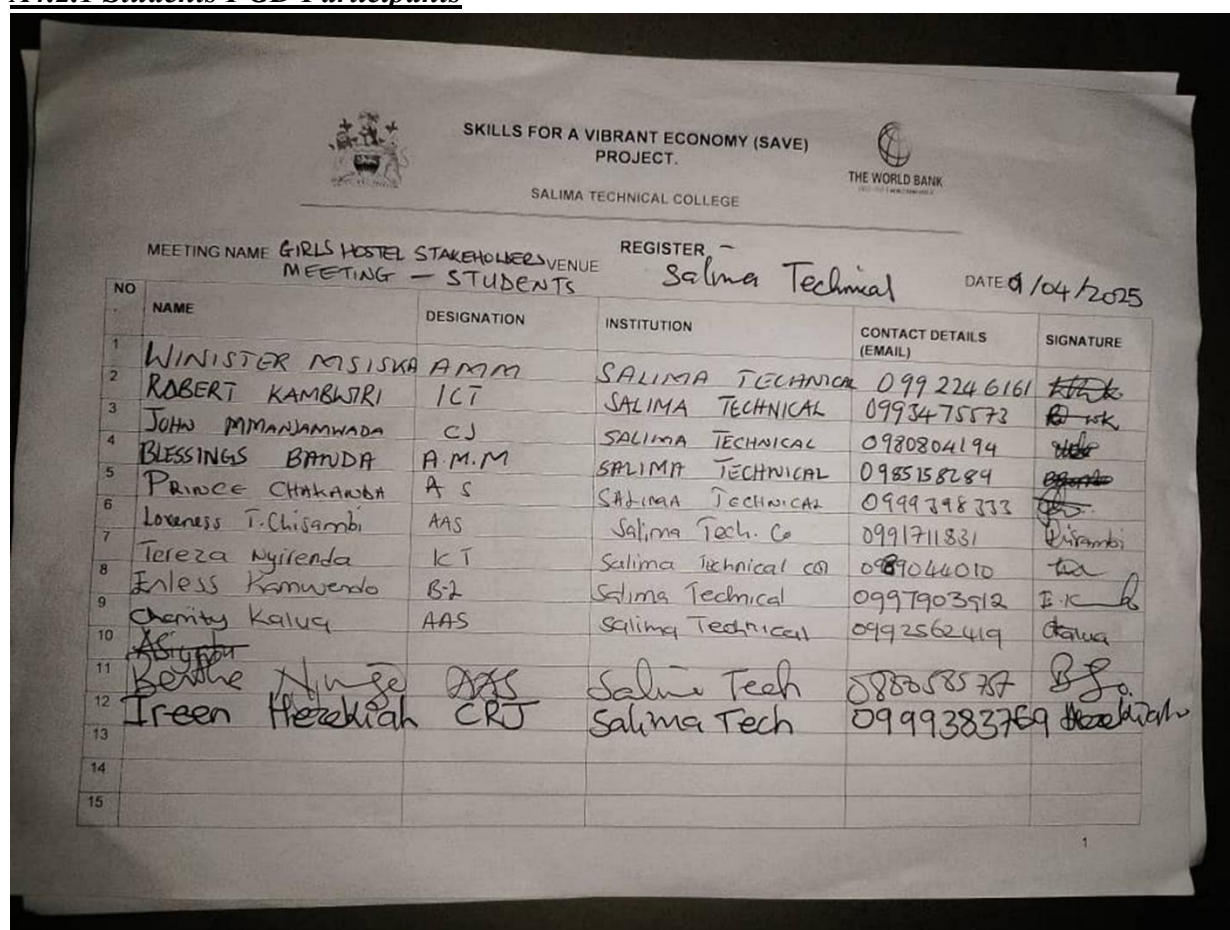 A4.2.1 Students FGD Participants
SKILLS FOR A VIBRANT ECONOMY (SAVE)
PROJECT.
THE WORLD BANK
SALIMA TECHNICAL COLLEGE
REGISTER -
MEETING NAME GIRLS HOSTEL STAKEHOLDERS VENUE Salima Technical DATE 9/04/2025
MEETING - STUDENTS
NO. NAME DESIGNATION INSTITUTION CONTACT DETAILS (EMAIL) SIGNATURE
1 WINISTER MSISKA AMM SALIMA TECHNICAL 0992246161
2 ROBERT ICT SALIMA TECHNICAL 0993475573
3 JOHN MMANJAMWADA CJ SALIMA TECHNICAL 0980804194
4 BLESSINGS BANDA A.M.M SALIMA TECHNICAL 0985158284
5 PRINCE CHAKANBA A S SALIMA TECHNICAL 0999398333
6 Loveness T. Chisambi AAS Salima Tech. Co 0991711831 Chisambi
7 Tereza Nyirenda ICT Salima Technical col 0989044010
8 Enless Kamwendo B-2 Salima Technical 0997903912 E.K
9 Charity Kalua AAS Salima Technical 0992562419 Ckalua
10
11 AAS Tech
12 Ireen Hezekiah CRJ Salima Tech 0999383769 Hezekiah
13
14
15
1